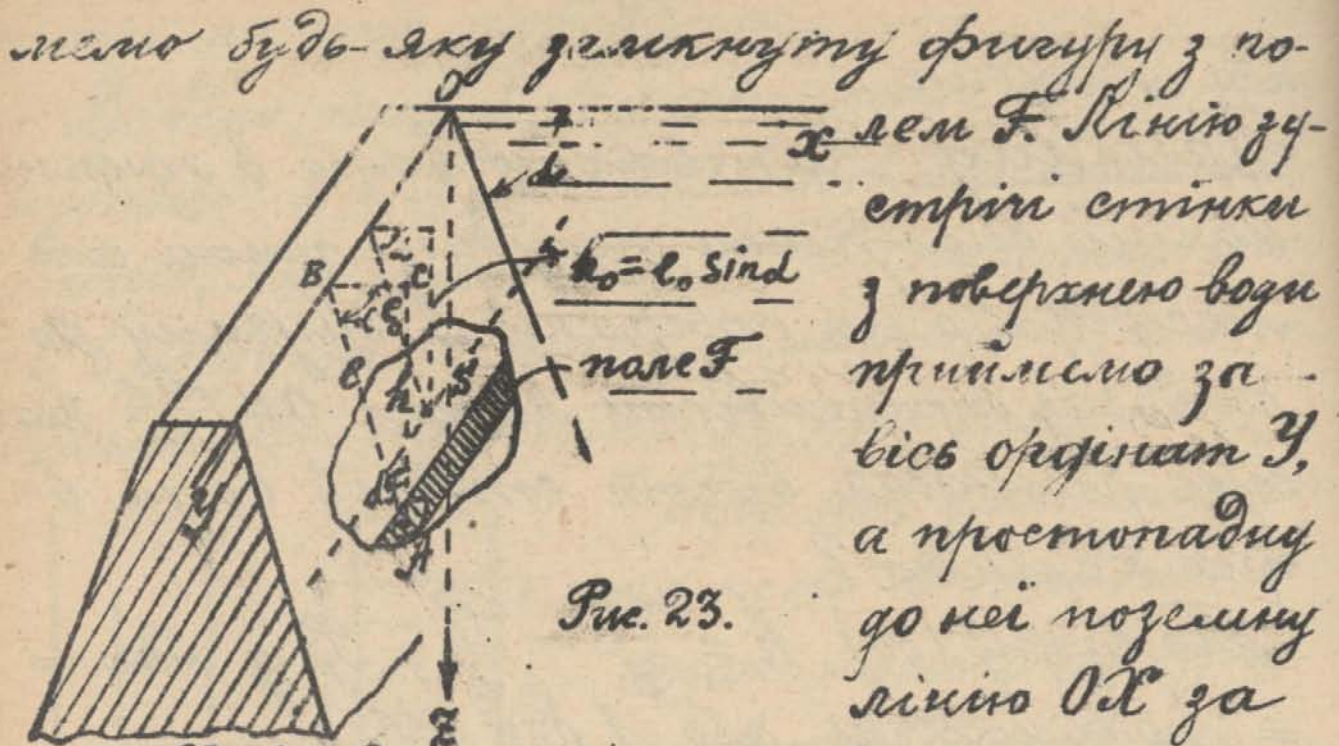 мемо будь-яку замкнуту фигуру з по-
лем F. Лінію зу-
стрічі стінки
з поверхнею води
приймемо за
вісь ордінат У,
а простопадну
до неї поземну
лінію ОХ за
O
x
α
B
C
h₀ = l₀ Sin α
поле F
h
S
A
Рис. 23.
z